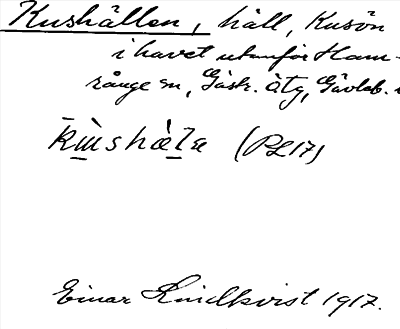 Kushällen, häll, Kusön
i havet utanför Ham-
rånge sn, Gästr. Ätg, Gävleb.
(PL 17)
Einar Lindkvist 1917.